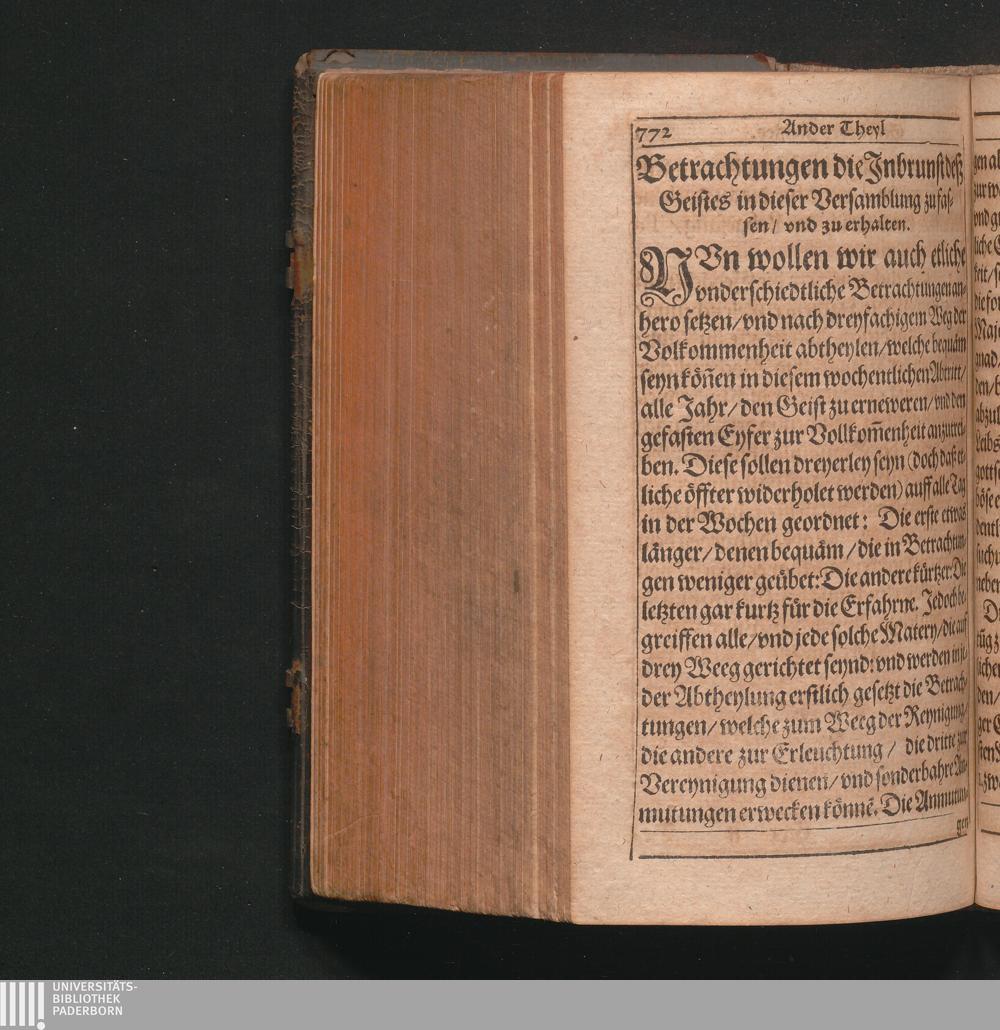 772 Ander Theyl
Betrachtungen die Inbrunst deß
Geistes in dieser Versamblung zu fas-
sen / vnd zu erhalten.
NVn wollen wir auch etliche
vnderschiedtliche Betrachtungen an-
hero setzen / vnd nach dreyfachigem Weg der
Volkommenheit abtheylen / welche bequäm
seyn köñen in diesem wochentlichen Abtritt /
alle Jahr / den Geist zu erneweren / vnd den
gefasten Eyfer zur Vollkom̃enheit anzutrei-
ben. Diese sollen dreyerley seyn (doch daß et-
liche öffter widerholet werden) auff alle Tag
in der Wochen geordnet: Die erste etwas
länger / denen bequäm / die in Betrachtun-
gen weniger geübet: Die andere kürtzer: Die
letzten gar kurtz für die Erfahrne. Jedoch be-
greiffen alle / vnd jede solche Matery / die auf
drey Weeg gerichtet seynd: vnd werden in je-
der Abtheylung erstlich gesetzt die Betrach-
tungen / welche zum Weeg der Reynigung /
die andere zur Erleuchtung / die dritte zur
Vereynigung dienen / vnd sonderbahre An-
mutungen erwecken könnẽ. Die Anmutun-
gen
UNIVERSITÄTS-
BIBLIOTHEK
PADERBORN